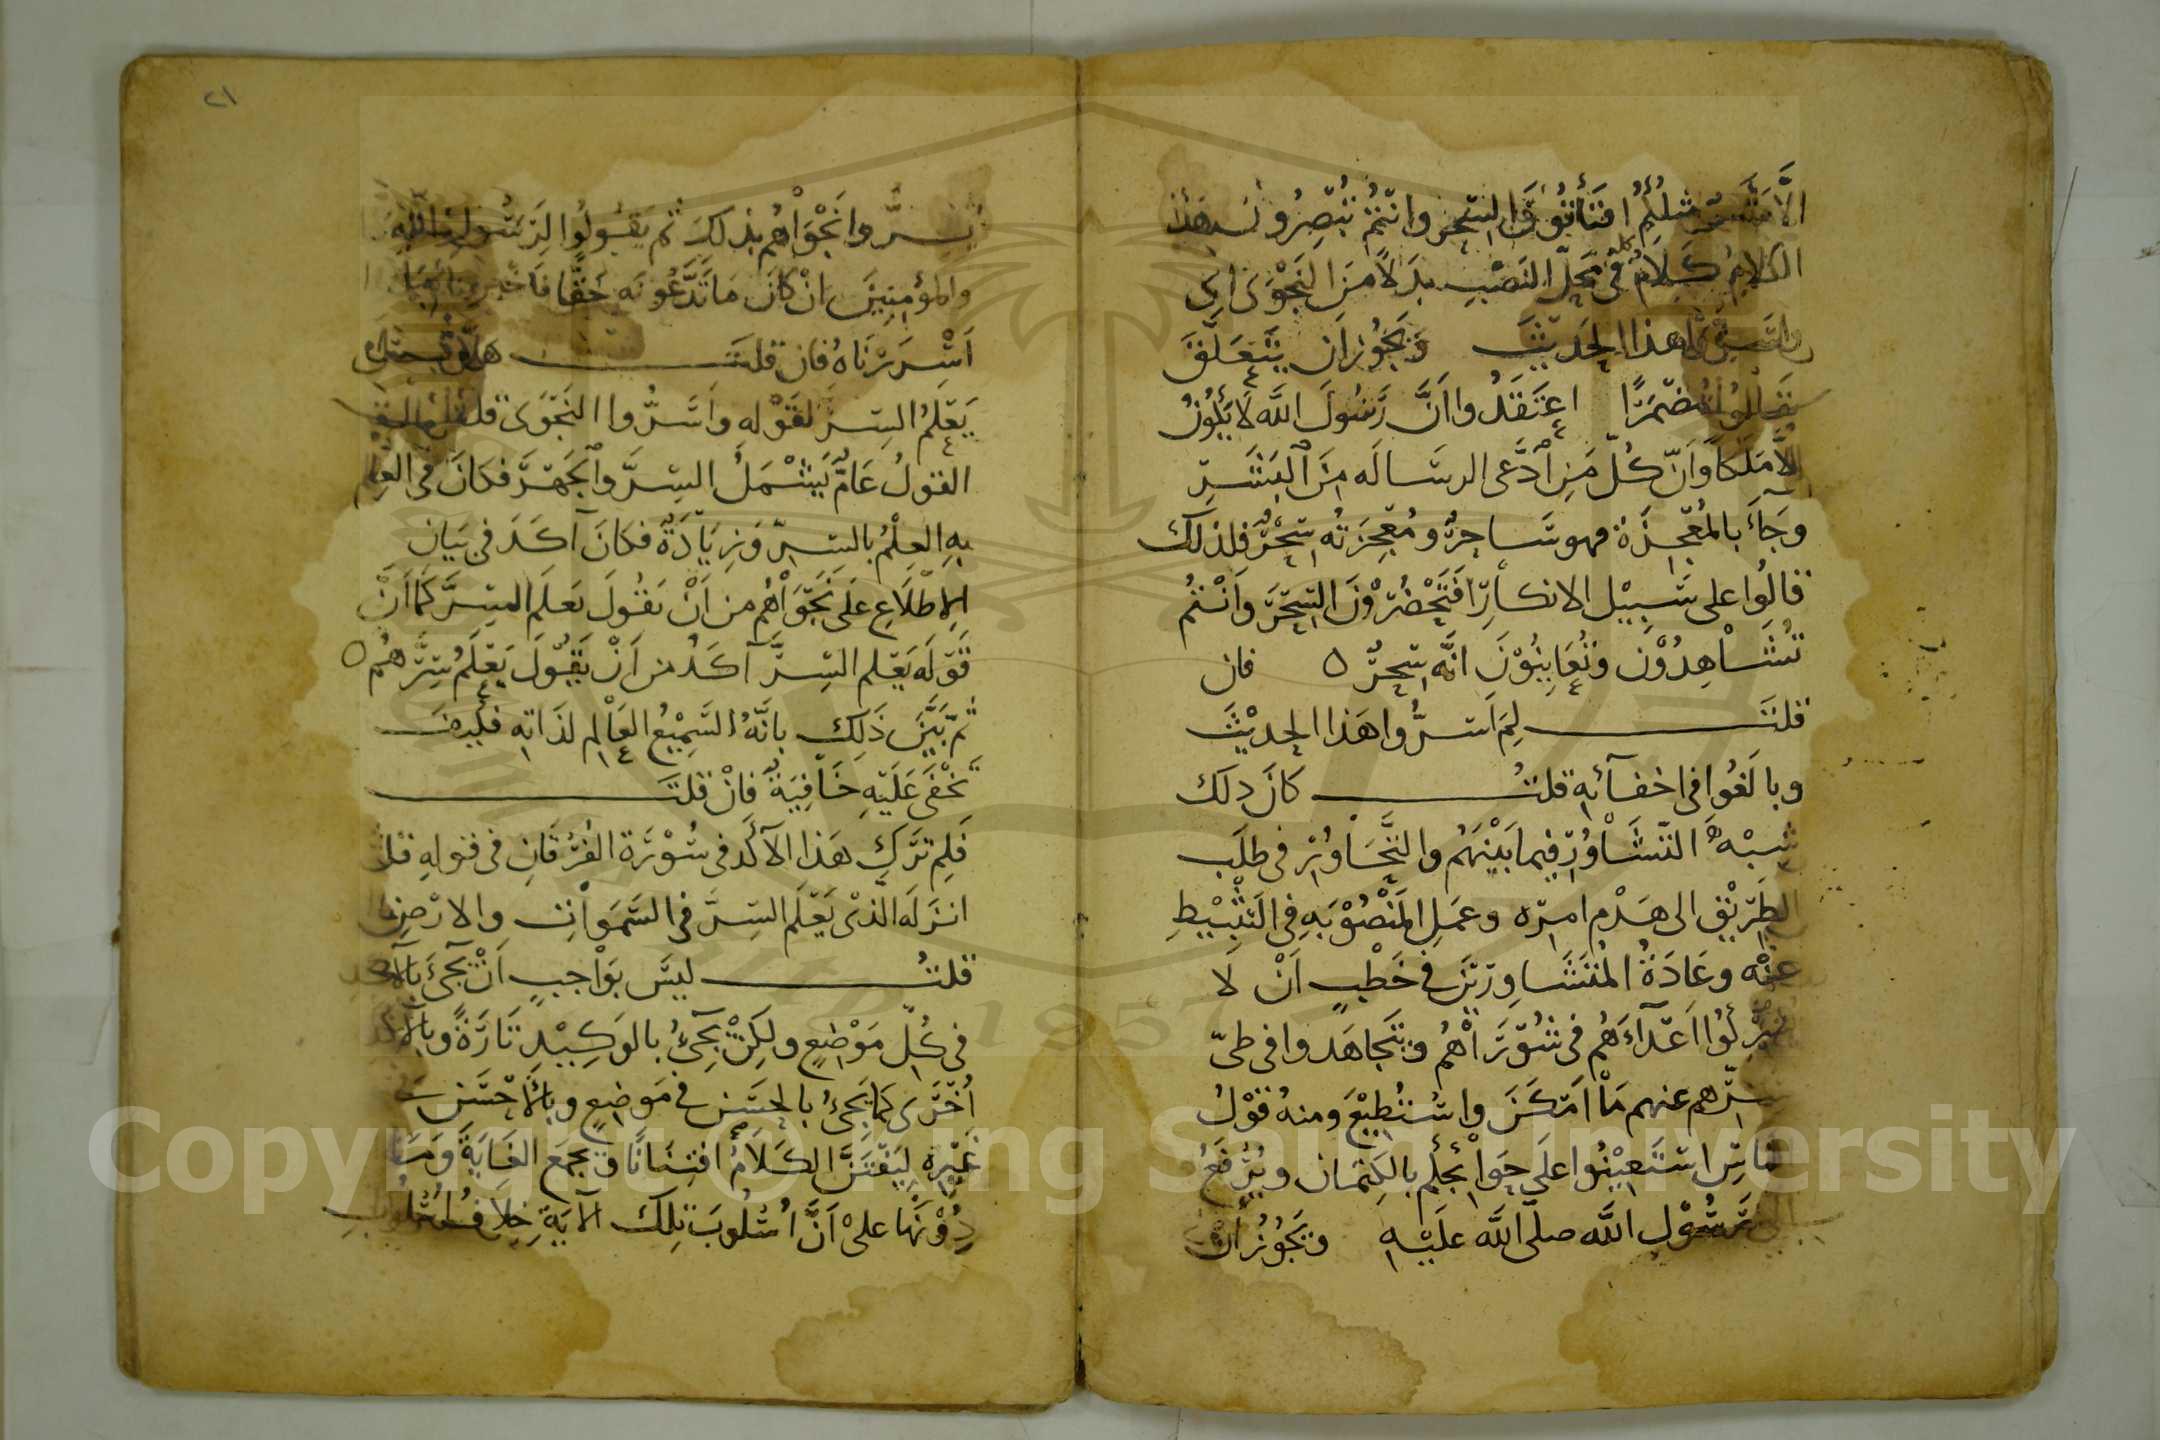 الا بشر مثلكم افتأتون السحر وانتم تبصرون هذا
الكلام كله في محل النصب بدلا من النجوى اى
واسروا هذا الحديث ويجوز ان يتعلق
بقالوا مضمرا اعتقدوا ان رسول الله لا يكون
الا ملكا وان كل من ادعى الرسالة من البشر
وجآء بالمعجزة فهو ساحر ومعجزته سحر فلذلك
قالوا على سبيل الانكار افتحضرون السحر وانتم
تشاهدون وتعاينون انه سحر ٥ فان
قلت لم اسروا هذا الحديث
وبالغوا في اخفآئه قلت كان ذلك
شبه التشاور فيما بينهم والتحاور في طلب
الطريق الى هدم امره وعمل المنصوبه في التثبيط
عنه وعادة المتشاورين في خطب ان لا
اعدآءهم في شوراهم ويتجاهدوا في طى
سرهم عنهم ما امكن واستطيع ومنه قول
الناس استعينوا على حوائجكم بالكتمان ويرفع
الى رسول الله صلى الله عليه ويجوز ان
٢١
يسروا نجواهم بذلك ثم يقولوا لرسول الله
والمؤمنين ان كان ما تدعونه حقا فاخبرونا بما
اسررناه فان قلت هلا قيل
يعلم السر لقوله واسروا النجوى قلت
القول عام يشمل السر والجهر فكان في العلم
به العلم بالسر وزيادة فكان آكد في بيان
الاطلاع على نجواهم من ان يقول يعلم السر كما ان
قوله يعلم السر آكد من ان يقول يعلم سرهم ٥
ثم بين ذلك بانه السميع العالم لذاته فكيف
تخفى عليه خافية فان قلت
فلم ترك هذا الآكد في سورة الفرقان في قوله قل
انزله الذى يعلم السر في السموات والارض
قلت ليس بواجب ان يجئ بالآكد
في كل موضع ولكن يجئ بالوكيد تارة وبالآكد
اخرى كما يجئ بالحسن في موضع وبالاحسن في
غيره ليفتن الكلام افتنانا ويجمع الغاية وما
دونها على ان اسلوب تلك الآية خلاف اسلوب
Copyright © King Saud University
1957